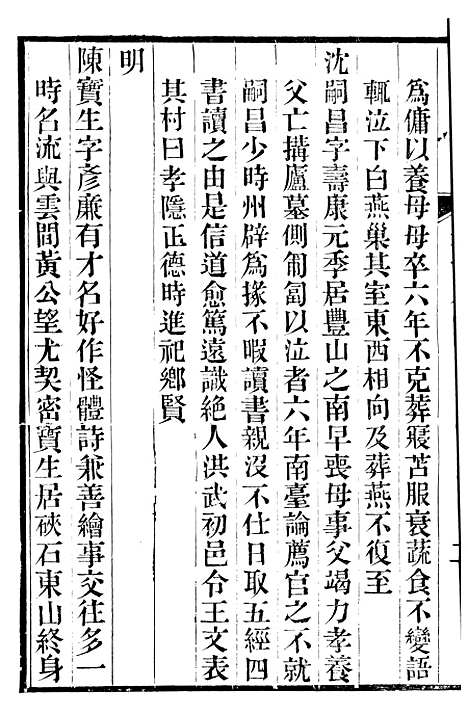 爲傭以養母母卒六年不克葬寢苫服衰蔬食不變語
輒泣下白燕巢其室東西相向及葬燕不復至
沈嗣昌字壽康元季居豐山之南早喪母事父竭力孝養
父亡搆廬墓側匍匐以泣者六年南臺論薦官之不就
嗣昌少時州辟爲掾不暇讀書親沒不仕日取五經四
書讀之由是信道愈篤遠識絶人洪武初邑令王文表
其村曰孝隱正德時進祀鄉賢
明
陳寶生字彥廉有才名好作怪體詩兼善繪事交往多一
時名流與雲間黃公望尤契密寶生居硤石東山終身